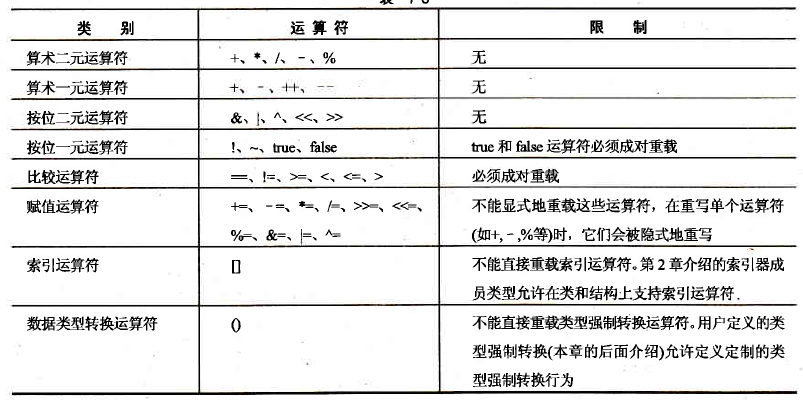 类 别 运 算 符 限 制
算术二元运算符 +、*、/、-、% 无
算术一元运算符 +、-、++、-- 无
按位二元运算符 &、|、^、<<、>> 无
按位一元运算符 !、~、true、false true 和 false 运算符必须成对重载
比较运算符 ==、!=、>=、<、<=、> 必须成对重载
赋值运算符 +=、-=、*=、/=、>>=、<<=、 不能显式地重载这些运算符，在重写单个运算符
%=、&=、|=、^= (如+,-,%等)时，它们会被隐式地重写
索引运算符 [] 不能直接重载索引运算符。第2章介绍的索引器成
员类型允许在类和结构上支持索引运算符.
数据类型转换运算符 () 不能直接重载类型强制转换运算符。用户定义的类
型强制转换(本章的后面介绍)允许定义定制的类
型强制转换行为